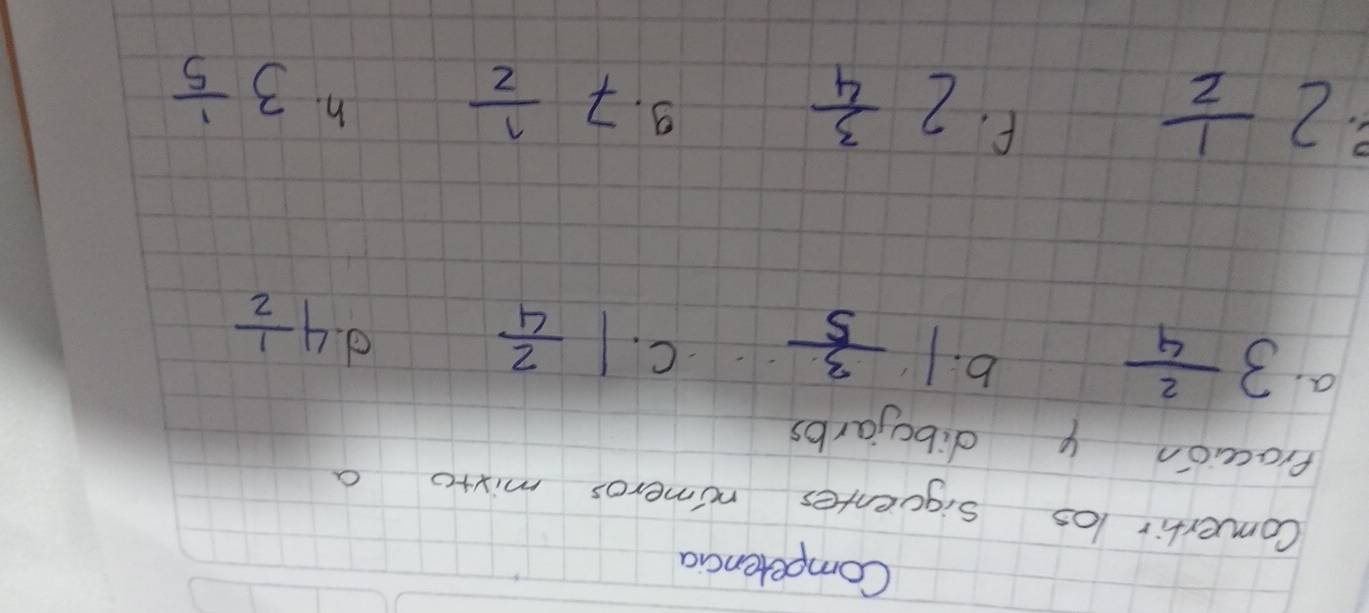 Competencia
Convertir los siguientes números mixto a
fracción y dibujarlos
a. 3 2/4 b. 1 3/5 c. 1 2/4 d. 4 1/2
e. 2 1/2 f. 2 3/4 g. 7 1/2 h. 3 1/5